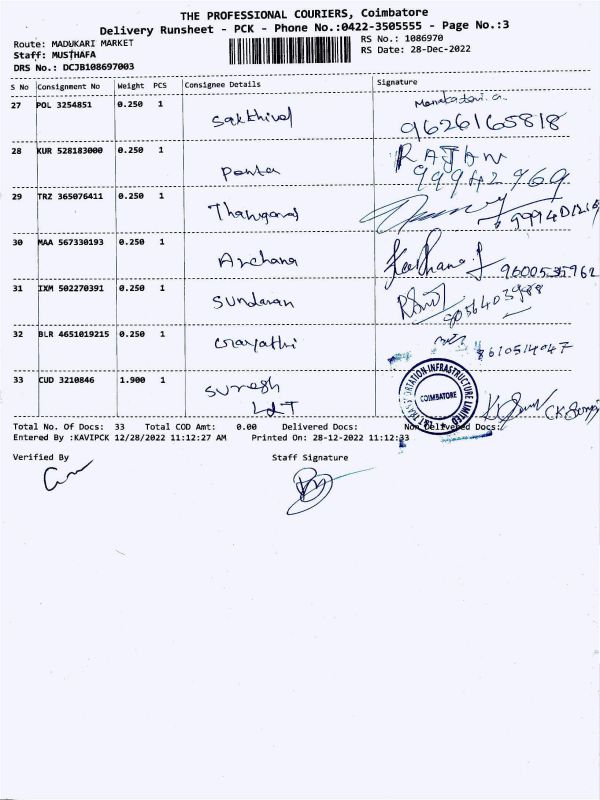 THE PROFESSIONAL COURIERS, Coimbatore
Delivery Runsheet - PCK - Phone No.:0422-3505555 - Page No.:3
Route: MADUKARI MARKET
RS No.: 1086970
Staff: MUSTHAFA
RS Date: 28-Dec-2022
DRS No.: DCJB108697003
S No Consignment No Weight PCS Consignee Details Signature
27 POL 3254851 0.250 1
Sakthivel 9626165818
28 KUR 528183000 0.250 1 RAJAN
Ponta 99942969
29 TRZ 365076411 0.250 1
Thangavel
30 MAA 567330193 0.250 1
Archana 9600535962
31 IXM 502270391 0.250 1
Sundaran 8056403988
32 BLR 4651019215 0.250 1
Gayathri 8610514047
33 CUD 3210846 1.900 1
Suresh
L&T
COIMBATORE
Total No. Of Docs: 33 Total COD Amt: 0.00 Delivered Docs: Non Delivered Docs:
Entered By :KAVIPCK 12/28/2022 11:12:27 AM Printed On: 28-12-2022 11:12:33
Verified By Staff Signature